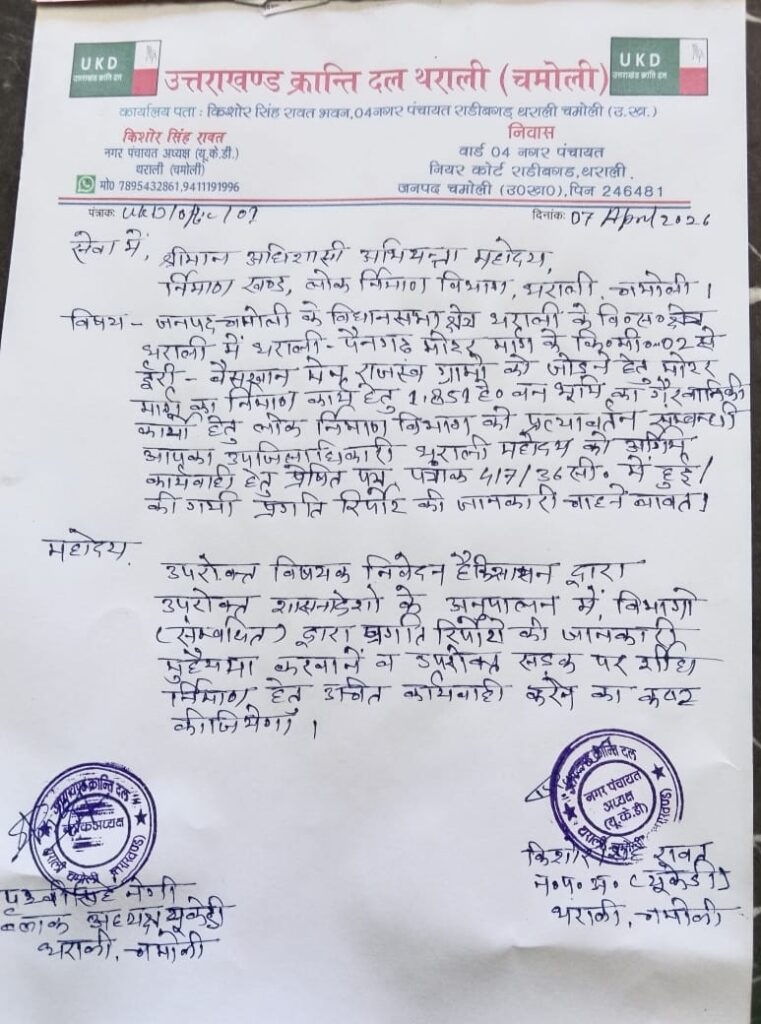 UKD
उत्तराखण्ड क्रान्ति दल
UKD
उत्तराखण्ड क्रान्ति दल
उत्तराखण्ड क्रान्ति दल थराली (चमोली)
कार्यालय पता : किशोर सिंह रावत भवन,04नगर पंचायत राडीबगड़ थराली चमोली (उ.ख.)
किशोर सिंह रावत
नगर पंचायत अध्यक्ष (यू.के.डी.)
थराली (चमोली)
मो0 7895432861,9411191996
निवास
वार्ड 04 नगर पंचायत
नियर कोर्ट राडीबगड़,थराली
जनपद चमोली (उ0ख0),पिन 246481
पंत्राकः
दिनांकः 07 April 2026
सेवा में, श्रीमान अधिशासी अभियन्ता महोदय,
निर्माण खण्ड, लोक निर्माण विभाग, थराली चमोली।
विषय - जनपद चमोली के विधानसभा क्षेत्र थराली के वि०स० क्षेत्र
थराली में थराली - पैनगढ मोटर मार्ग के कि०मी० 02 से
ईरी - मेन राजस्व ग्रामो को जोडने हेतु मोटर
मार्ग का निर्माण कार्य हेतु 1.851 है० वन भूमि का गैरवानिकी
कार्यो हेतु लोक निर्माण विभाग को प्रत्यावर्तन सम्बन्धी
आपका उपजिलाधिकारी थराली महोदय को अग्रिम
कार्यवाही हेतु प्रेषित पत्र पत्रांक 417/36 सी० में हुई/
की गयी प्रगति रिर्पोट की जानकारी चाहने बावत।
महोदय,
उपरोक्त विषयक निवेदन है कि शासन द्वारा
उपरोक्त शासनादेशो के अनुपालन में, विभागो
(संम्बधित) द्वारा प्रगति रिर्पोट की जानकारी
मुहैयमा करवाने व उपरोक्त सडक पर शीघ्र
निर्माण हेतु उचित कार्यवाही करने का कष्ट
कीजियेगा।
उत्तराखण्ड क्रान्ति दल
ब्लॉक अध्यक्ष
थराली चमोली (उत्तराखण्ड)
उत्तराखण्ड क्रान्ति दल
नगर पंचायत
अध्यक्ष
(यू.के.डी)
थराली चमोली (उत्तराखण्ड)
सिंह नेगी
ब्लाक अध्यक्ष यूकेडी
थराली, चमोली
किशोर सिंह रावत
न.पं.अ. (यूकेडी)
थराली, चमोली